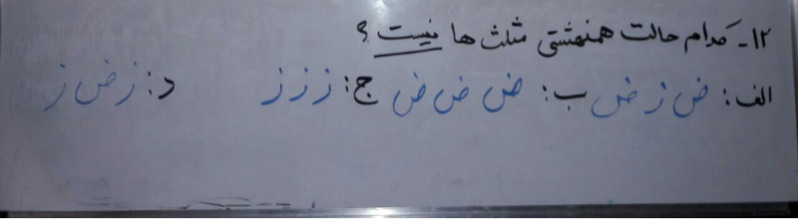 ۱۲- کدام حالت همنهشتی مثلث ها نیست ؟
الف: ض ز ض ب: ض ض ض ج: ز ز ز د: ز ض ز